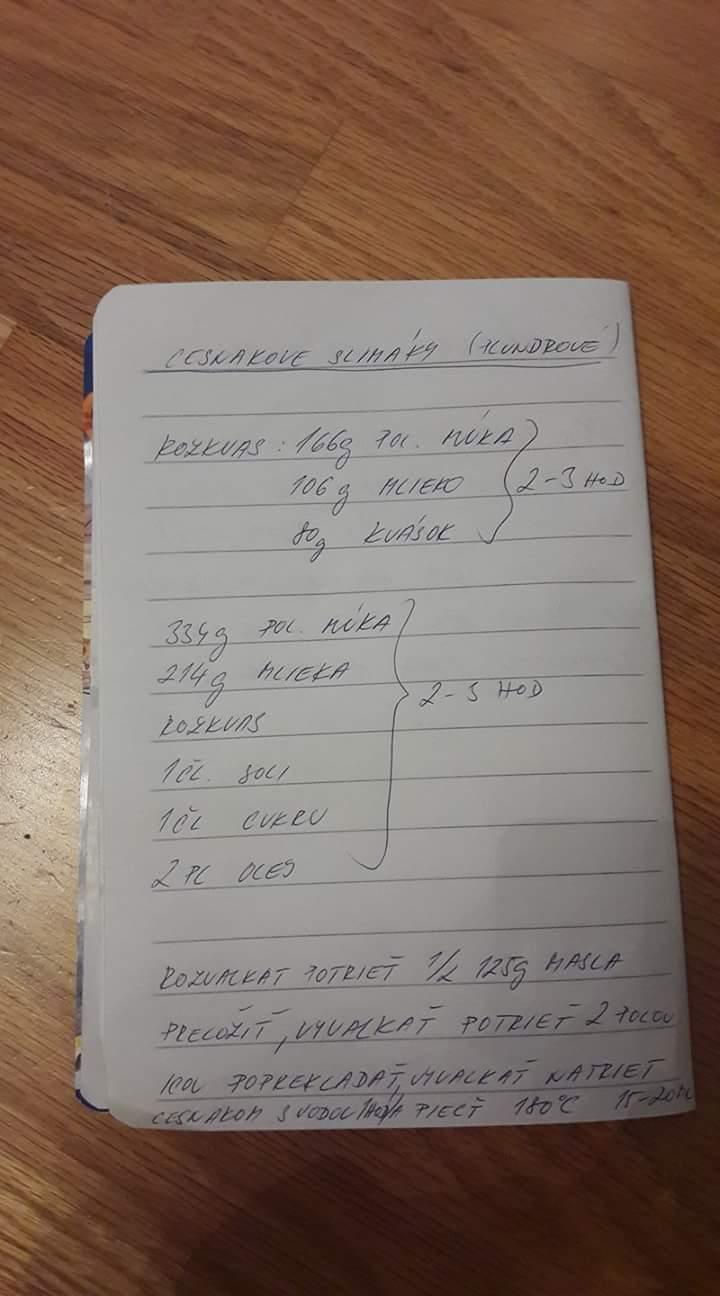 CESNAKOVE SLIMÁKY (PLUNDROVÉ)
ROZKVAS: 166g POL. MÚKA
106g MLIEKO } 2-3 HOD
80g KVÁSOK
334g POL. MÚKA
214g MLIEKA
ROZKVAS } 2-3 HOD
1 ČL. SOLI
1 ČL CUKRU
2 PL OLEJ
ROZVALKAT POTRIEŤ 1/2 125g MASLA
PRELOŽIŤ, VYVALKAŤ POTRIEŤ 2 POLOV
POPREKLADAŤ, VYVALKAŤ NATRIEŤ
CESNAKOM S VODOU PIECŤ 180°C 15-20